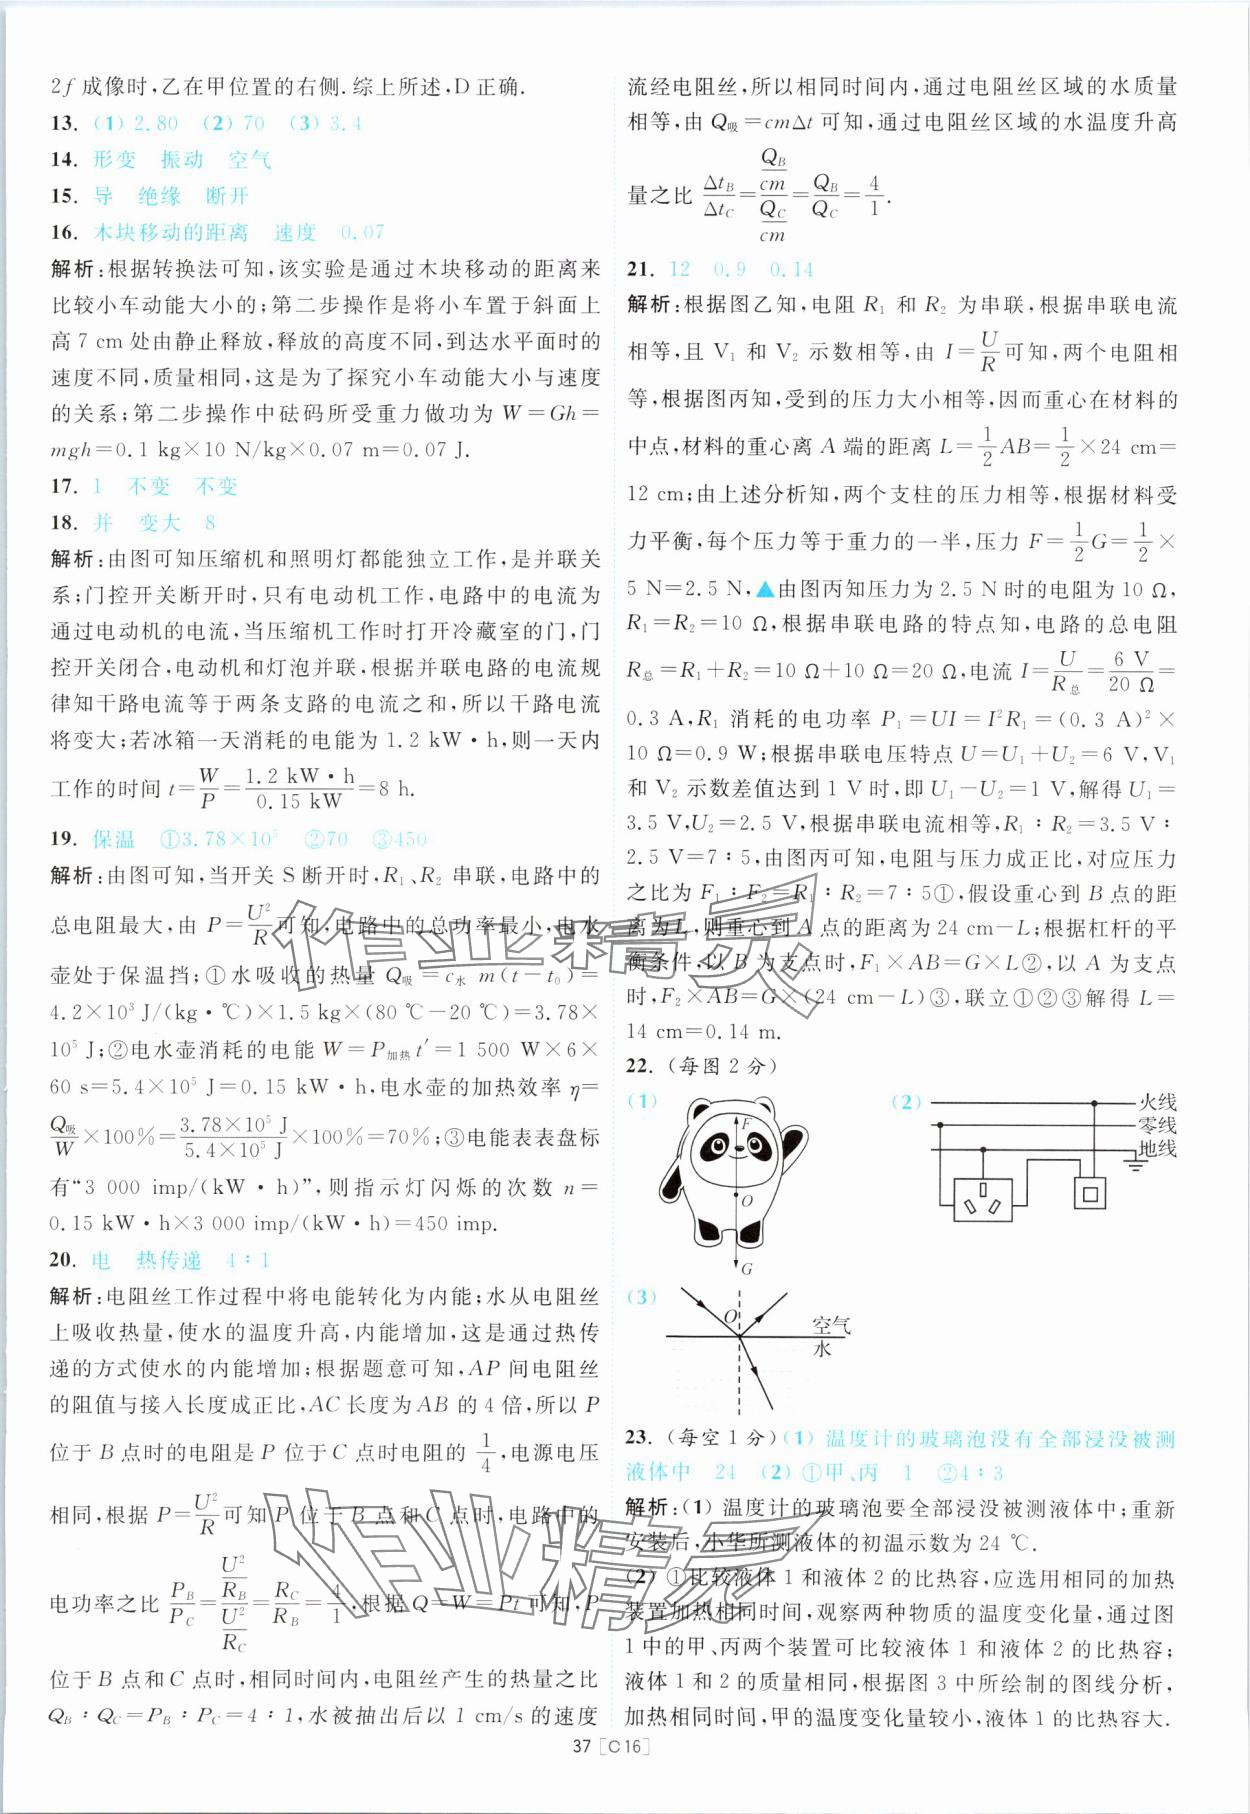 2f 成像时,乙在甲位置的右侧.综上所述,D 正确.
13. (1) 2.80 (2) 70 (3) 3.4
14. 形变 振动 空气
15. 导 绝缘 断开
16. 木块移动的距离 速度 0.07
解析:根据转换法可知,该实验是通过木块移动的距离来
比较小车动能大小的;第二步操作是将小车置于斜面上
高 7 cm 处由静止释放,释放的高度不同,到达水平面时的
速度不同,质量相同,这是为了探究小车动能大小与速度
的关系;第二步操作中砝码所受重力做功为 W=Gh=
mgh=0.1 kg×10 N/kg×0.07 m=0.07 J.
17. 1 不变 不变
18. 并 变大 8
解析:由图可知压缩机和照明灯都能独立工作,是并联关
系;门控开关断开时,只有电动机工作,电路中的电流为
通过电动机的电流,当压缩机工作时打开冷藏室的门,门
控开关闭合,电动机和灯泡并联,根据并联电路的电流规
律知干路电流等于两条支路的电流之和,所以干路电流
将变大;若冰箱一天消耗的电能为 1.2 kW·h,则一天内
工作的时间 t=W/P=1.2 kW·h/0.15 kW=8 h.
19. 保温 ①3.78×10⁵ ②70 ③450
解析:由图可知,当开关 S 断开时,R₁、R₂ 串联,电路中的
总电阻最大,由 P=U²/R可知,电路中的总功率最小,电水
壶处于保温挡;①水吸收的热量 Q吸=c水 m(t-t₀)=
4.2×10³ J/(kg·℃)×1.5 kg×(80 ℃-20 ℃)=3.78×
10⁵ J;②电水壶消耗的电能 W=P加热t′=1 500 W×6×
60 s=5.4×10⁵ J=0.15 kW·h,电水壶的加热效率 η=
Q吸/W×100%=3.78×10⁵ J/5.4×10⁵ J×100%=70%;③电能表表盘标
有“3 000 imp/(kW·h)”,则指示灯闪烁的次数 n=
0.15 kW·h×3 000 imp/(kW·h)=450 imp.
20. 电 热传递 4∶1
解析:电阻丝工作过程中将电能转化为内能;水从电阻丝
上吸收热量,使水的温度升高,内能增加,这是通过热传
递的方式使水的内能增加;根据题意可知,AP 间电阻丝
的阻值与接入长度成正比,AC长度为AB的 4 倍,所以 P
位于 B 点时的电阻是 P 位于C 点时电阻的 1/4,电源电压
相同,根据 P=U²/R可知 P 位于 B 点和 C 点时,电路中的
电功率之比 P_B/P_C=(U²/R_B)/(U²/R_C)=R_C/R_B=4/1,根据 Q=W=Pt 可知,P
位于 B 点和 C 点时,相同时间内,电阻丝产生的热量之比
Q_B∶Q_C=P_B∶P_C=4∶1,水被抽出后以 1 cm/s 的速度
流经电阻丝,所以相同时间内,通过电阻丝区域的水质量
相等,由 Q吸=cmΔt 可知,通过电阻丝区域的水温度升高
量之比 Δt_B/Δt_C=(Q_B/cm)/(Q_C/cm)=Q_B/Q_C=4/1.
21. 12 0.9 0.14
解析:根据图乙知,电阻 R₁ 和 R₂ 为串联,根据串联电流
相等,且 V₁ 和 V₂ 示数相等,由 I=U/R可知,两个电阻相
等,根据图丙知,受到的压力大小相等,因而重心在材料的
中点,材料的重心离 A 端的距离 L=1/2AB=1/2×24 cm=
12 cm;由上述分析知,两个支柱的压力相等,根据材料受
力平衡,每个压力等于重力的一半,压力 F=1/2G=1/2×
5 N=2.5 N,▲由图丙知压力为 2.5 N 时的电阻为 10 Ω,
R₁=R₂=10 Ω,根据串联电路的特点知,电路的总电阻
R总=R₁+R₂=10 Ω+10 Ω=20 Ω,电流 I=U/R总=6 V/20 Ω=
0.3 A,R₁ 消耗的电功率 P₁=UI=I²R₁=(0.3 A)²×
10 Ω=0.9 W;根据串联电压特点 U=U₁+U₂=6 V,V₁
和 V₂ 示数差值达到 1 V 时,即 U₁-U₂=1 V,解得 U₁=
3.5 V,U₂=2.5 V,根据串联电流相等,R₁∶R₂=3.5 V∶
2.5 V=7∶5,由图丙可知,电阻与压力成正比,对应压力
之比为 F₁∶F₂=R₁∶R₂=7∶5①,假设重心到 B 点的距
离为 L,则重心到 A 点的距离为 24 cm-L;根据杠杆的平
衡条件,以 B 为支点时,F₁×AB=G×L②,以 A 为支点
时,F₂×AB=G×(24 cm-L)③,联立①②③解得 L=
14 cm=0.14 m.
22. (每图 2 分)
(1)
F
O
G
(2)
火线
零线
地线
(3)
O
空气
水
23. (每空 1 分)(1) 温度计的玻璃泡没有全部浸没被测
液体中 24 (2) ①甲、丙 1 ②4∶3
解析:(1) 温度计的玻璃泡要全部浸没被测液体中;重新
安装后,小华所测液体的初温示数为 24 ℃.
(2) ①比较液体 1 和液体 2 的比热容,应选用相同的加热
装置加热相同时间,观察两种物质的温度变化量,通过图
1 中的甲、丙两个装置可比较液体 1 和液体 2 的比热容;
液体 1 和 2 的质量相同,根据图 3 中所绘制的图线分析,
加热相同时间,甲的温度变化量较小,液体 1 的比热容大.
37 [C16]
作业精灵
作业精灵